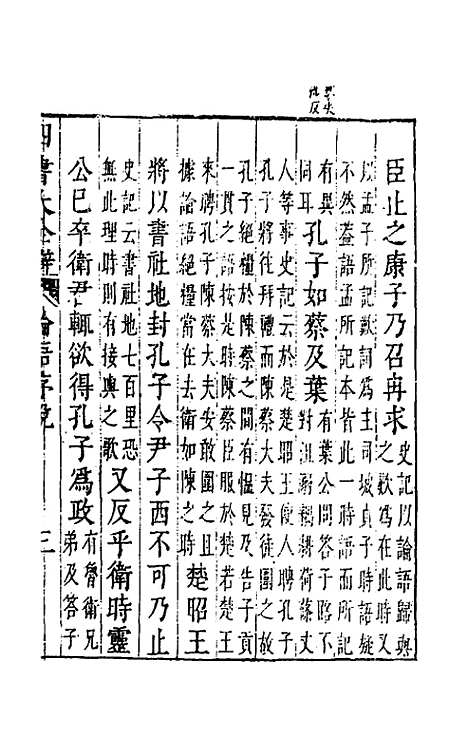 臣止之康子乃召冉求史記以論語歸與之歎為在此時又
以孟子所記歎詞為主司城貞子時語疑
不然蓋語孟所記本皆此一時語而所記
有異同耳孔子如蔡及葉有葉公問答子路不對沮溺耦耕荷蓧丈
人等事史記云於是楚昭王使人聘孔子
孔子將往拜禮而陳蔡大夫發徒圍之故
孔子絕糧於陳蔡之間有慍見及告子貢
一貫之語按是時陳蔡臣服於楚若楚王
來聘孔子陳蔡大夫安敢圍之且據論語絕糧當在去衛如陳之時楚昭王
將以書社地封孔子令尹子西不可乃止
史記云書社地七百里恐無此理時則有接輿之歌又反乎衛時靈
公已卒衛君輒欲得孔子為政有魯衛兄弟及答子
四書大全辯 論語序說 三